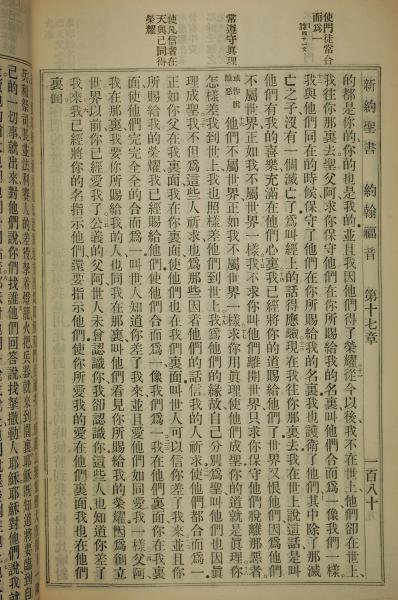 使門徒常合
而爲一
常遵守真理
使凡信者在
天與己同得
榮耀
新約聖書 約翰福音 第十七章 一百八十
的都是你的、你的也是我的、並且我因他們得了榮耀、從今以後、我不在世上、他們卻在世上、
我往你那裏去、聖父阿、求你保守他們在你所賜給我的名裏、叫他們合而爲一像我們一樣、
我與他們同在的時候保守了他們、在你所賜給我的名裏、我也護衛了他們、其中除了那滅
亡之子、沒有一個滅亡了、爲叫經上的話得應驗、現在我往你那裏去、我在世上說這話、是叫
他們有我的喜樂、充滿在他們心裏、我已經將你的道賜給他們了、世界又恨他們、因爲他們
不屬世界、正如我不屬世界一樣、我不求你叫他們離開世界、只求你保守他們脫離那惡者、
他們不屬世界、正如我不屬世界一樣、求你用真理使他們成聖、你的道就是真理、你
怎樣差我到世上、我也照樣差他們到世上、我爲他們的緣故、自己分別爲聖、叫他們也因真
理成聖、我不但爲這些人祈求、也爲那些因着他們的話信我的人祈求、使他們都合而爲一、
正如你父在我裏面、我在你裏面、使他們也在我們裏面、叫世人可以信你差了我來、並且你
所賜給我的榮耀、我已經賜給他們、使他們合而爲一、像我們爲一、我在他們裏面、你在我裏
面、使他們完完全全的合而爲一、叫世人知道你差了我來、並且愛他們如同愛我一樣、父阿、
我在那裏、我要你所賜給我的人也同我在那裏、叫他們看見你所賜給我的榮耀、因爲創立
世界以前、你已經愛我了、公義的父阿、世人未曾認識你、我卻認識你、這些人也知道你差了
我來、我已經將你的名指示他們、還要指示他們、使你所愛我的愛在他們裏面、我也在他們
裏面、
己的一切事就出來對他們說你們找誰他們回答說找拿撒勒人耶穌耶穌對他們說我就